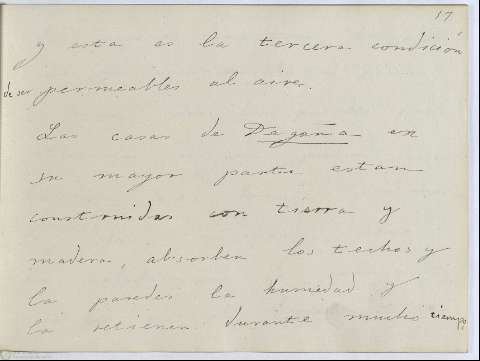 17
y esta es la tercera condición
de ser permeables al aire.
Las casas de Degaña en
su mayor parte estan
construidas con tierra y
madera, absorben los techos y
la paredes la humedad y
la retienen durante mucho tiempo